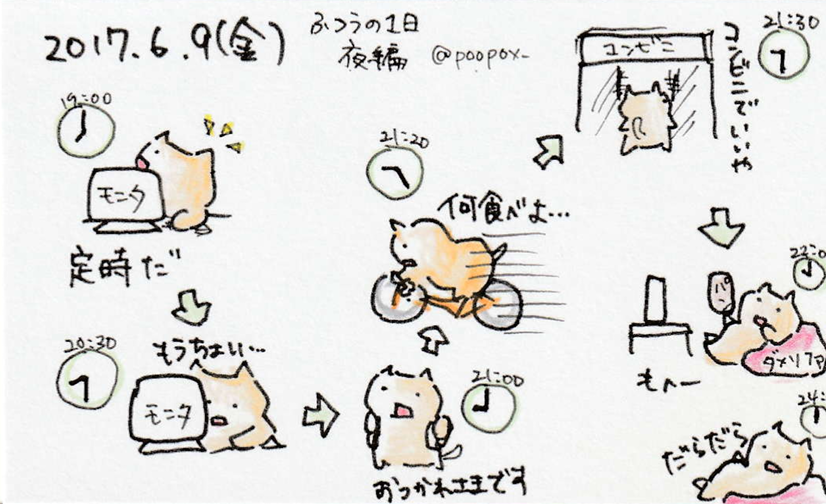 2017.6.9(金)
ふつうの1日
夜編 @poopox-
19:00
モニタ
定時だ
20:30
もうちょい…
モニタ
21:00
おつかれさまです
21:20
何食べよ…
21:30
コンビニ
コンビニでいいや
22:0
ダメソファ
もへー
24:
だらだら